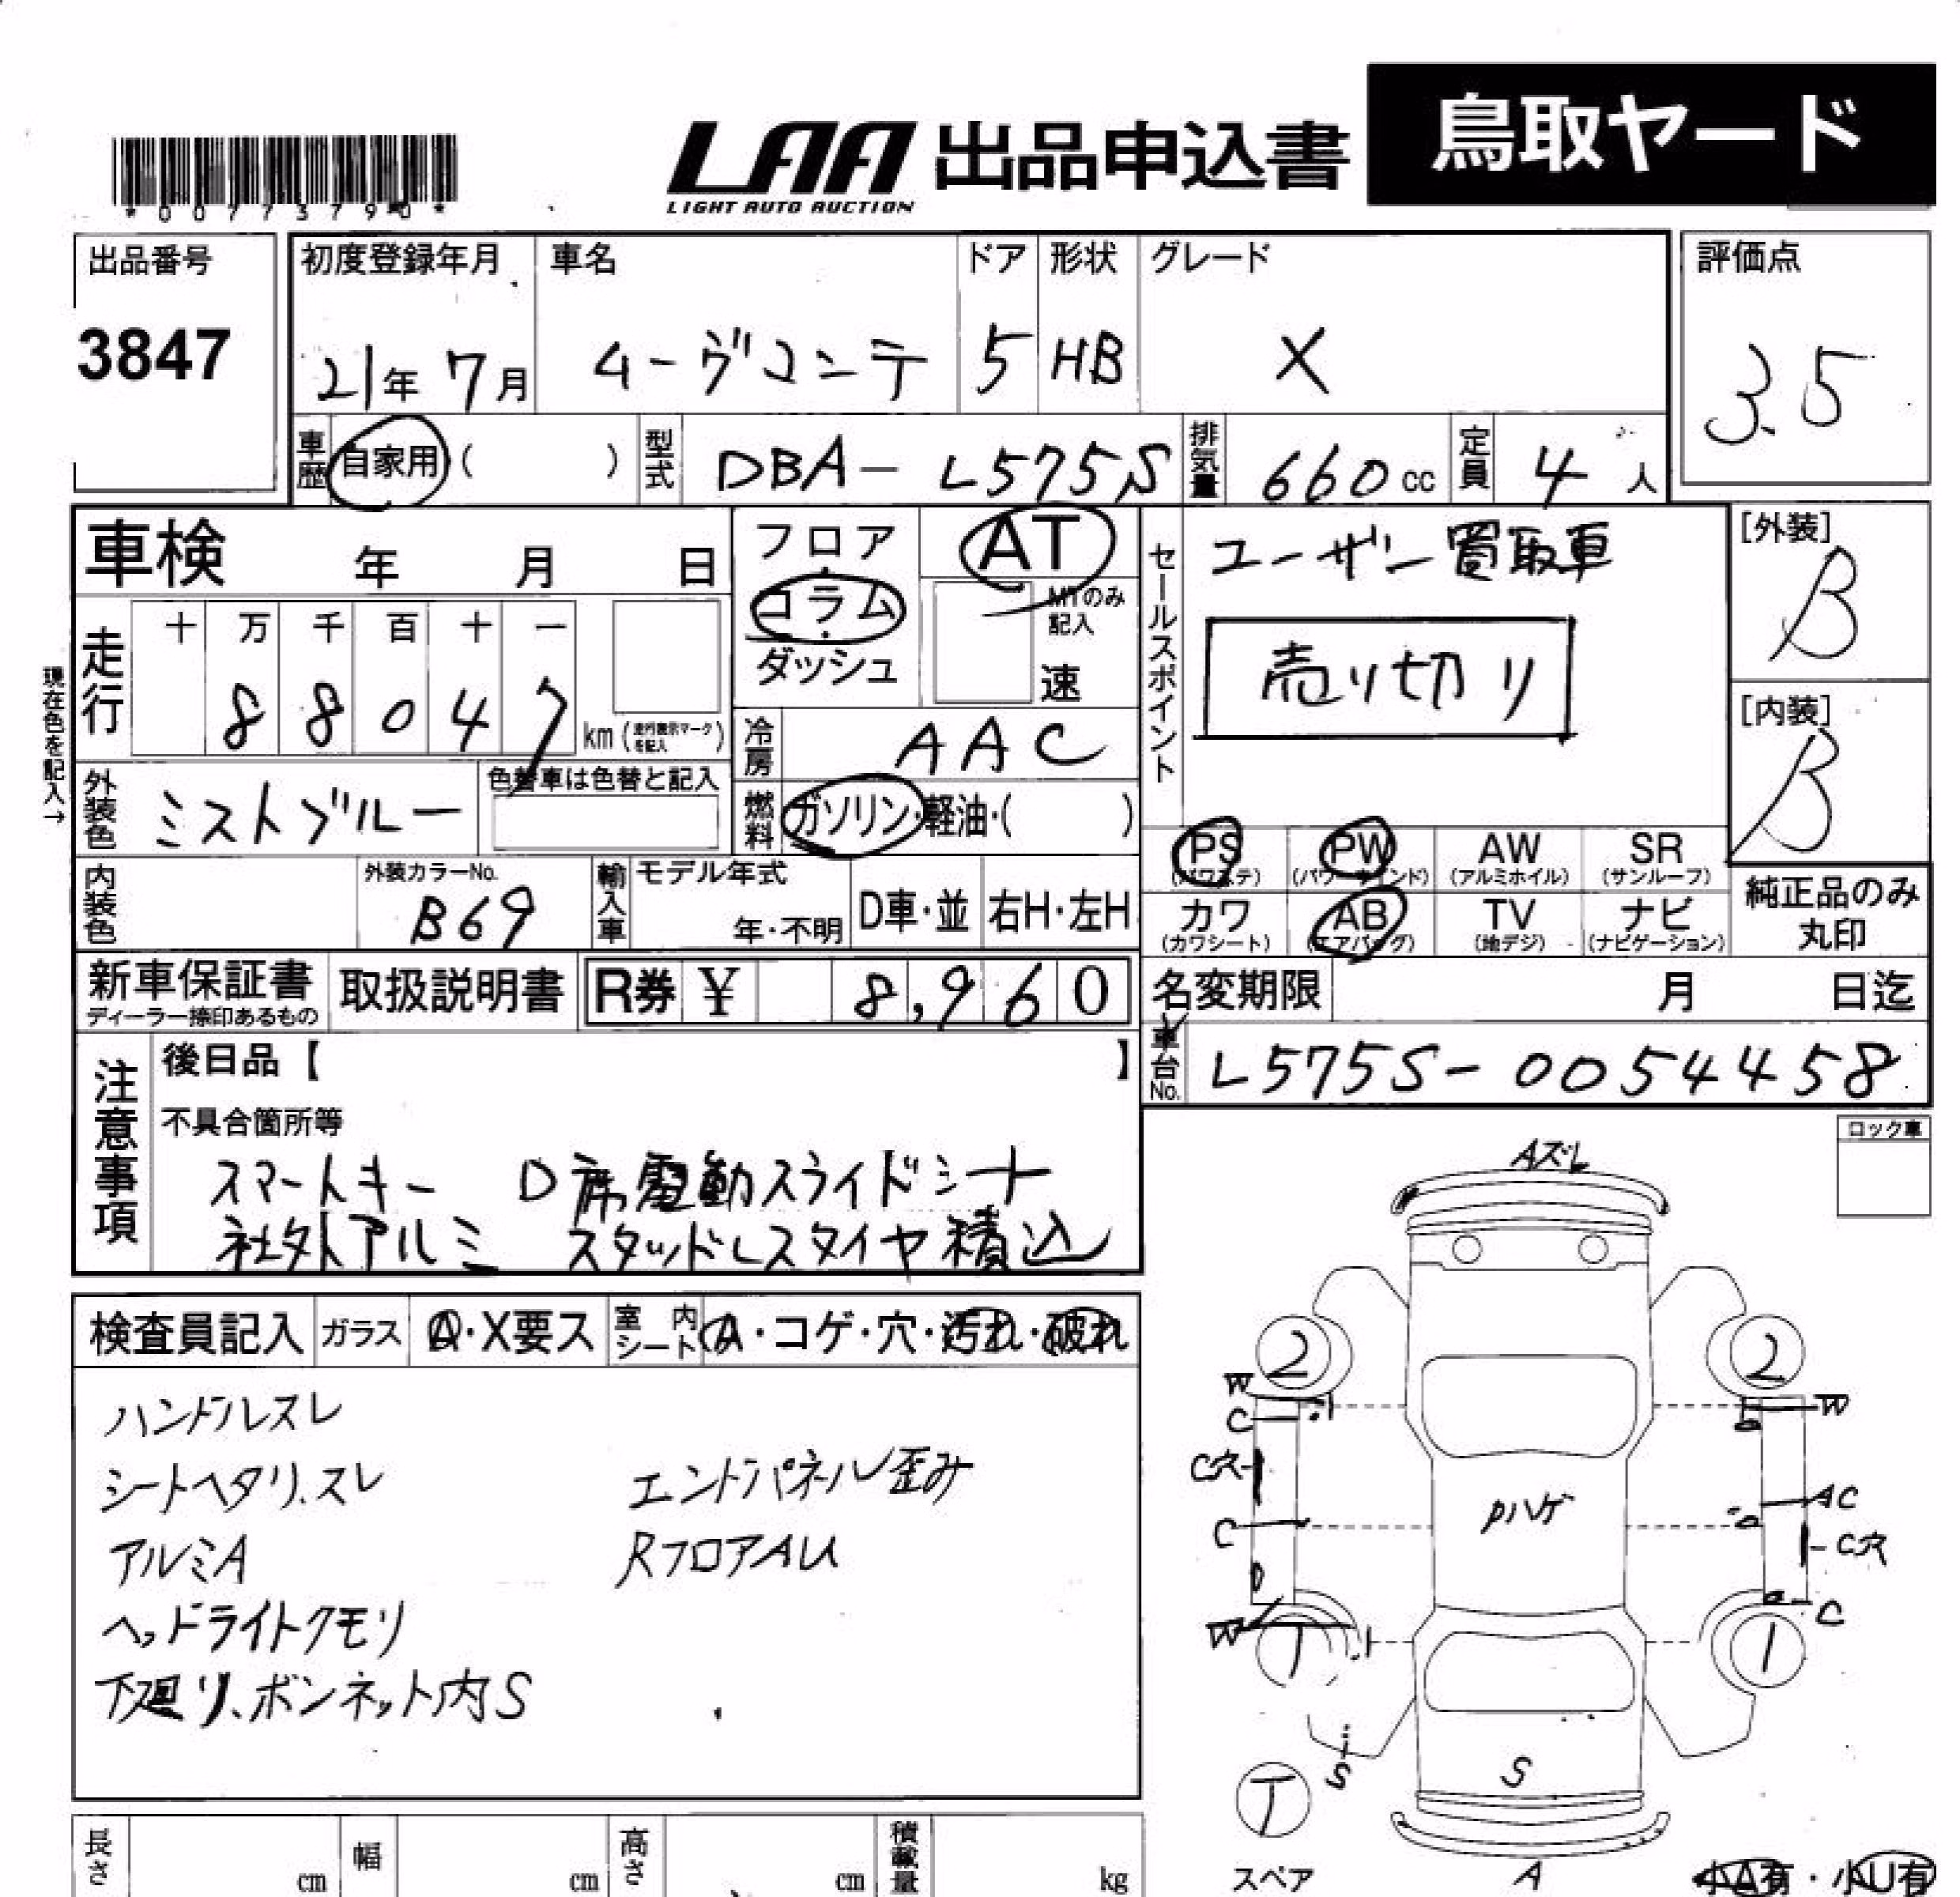 鳥取ヤード
LAA 出品申込書
LIGHT AUTO AUCTION
*00773790*
出品番号 初度登録年月 車名 ドア 形状 グレード 評価点
3847 21年 7月 ムーヴコンテ 5 HB X 3.5
車歴 自家用 ( ) 型式 DBA-L575S 排気量 660cc 定員 4人
車検 年 月 日
フロア・コラム・ダッシュ
AT
MTのみ記入
速
セールスポイント
ユーザー買取車
売り切り
[外装]
B
[内装]
B
現在色を記入→
走行 十 万 千 百 十 一
88047 km (走行表示マークを記入)
冷房 AAC
外装色 ミストブルー 色替車は色替と記入
燃料 ガソリン・軽油・( )
PS (パワステ) PW (パワーウインド) AW (アルミホイル) SR (サンルーフ)
カワ (カワシート) AB (エアバッグ) TV (地デジ) ナビ (ナビゲーション)
純正品のみ丸印
内装色 外装カラーNo. B69 輸入車 モデル年式 年・不明 D車・並 右H・左H
新車保証書 ディーラー捺印あるもの 取扱説明書 R券 ¥ 8,960
名変期限 月 日迄
車台No. L575S-0054458
注意事項
後日品【 】
不具合箇所等
スマートキー D席電動スライドシート
社外アルミ スタッドレスタイヤ積込
ロック車
検査員記入 ガラス A・X要ス 室内シート A・コゲ・穴・汚れ・破れ
ハンドルスレ
シートヘタリ、スレ エンドパネル歪み
アルミA RフロアAU
ヘッドライトクモリ
下廻り、ボンネット内S
Aズレ
2 2
W W
C
C穴
Pハゲ
AC
C
C穴
C
W
T 1
S
S
T
スペア
A
小A有・小U有
長さ cm 幅 cm 高さ cm 積載量 kg